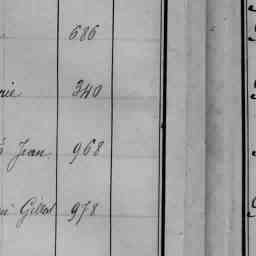 686
rie 340
Jean 968
978